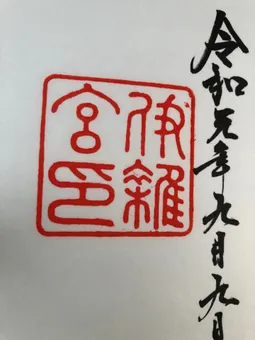 令和元年九月九日
伊雜
宮印